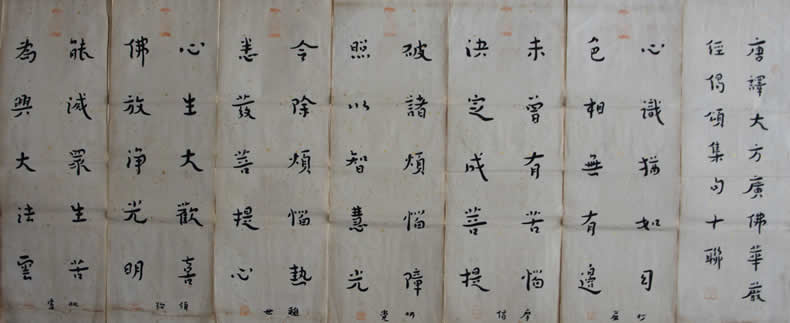 唐譯大方廣佛華嚴
經偈頌集句十聯
心識猶如幻
色相無有邊
未曾有苦惱
決定成菩提
破諸煩惱障
照以智慧光
令除煩惱熱
悉發菩提心
心生大歡喜
佛放淨光明
能滅眾生苦
為興大法雲